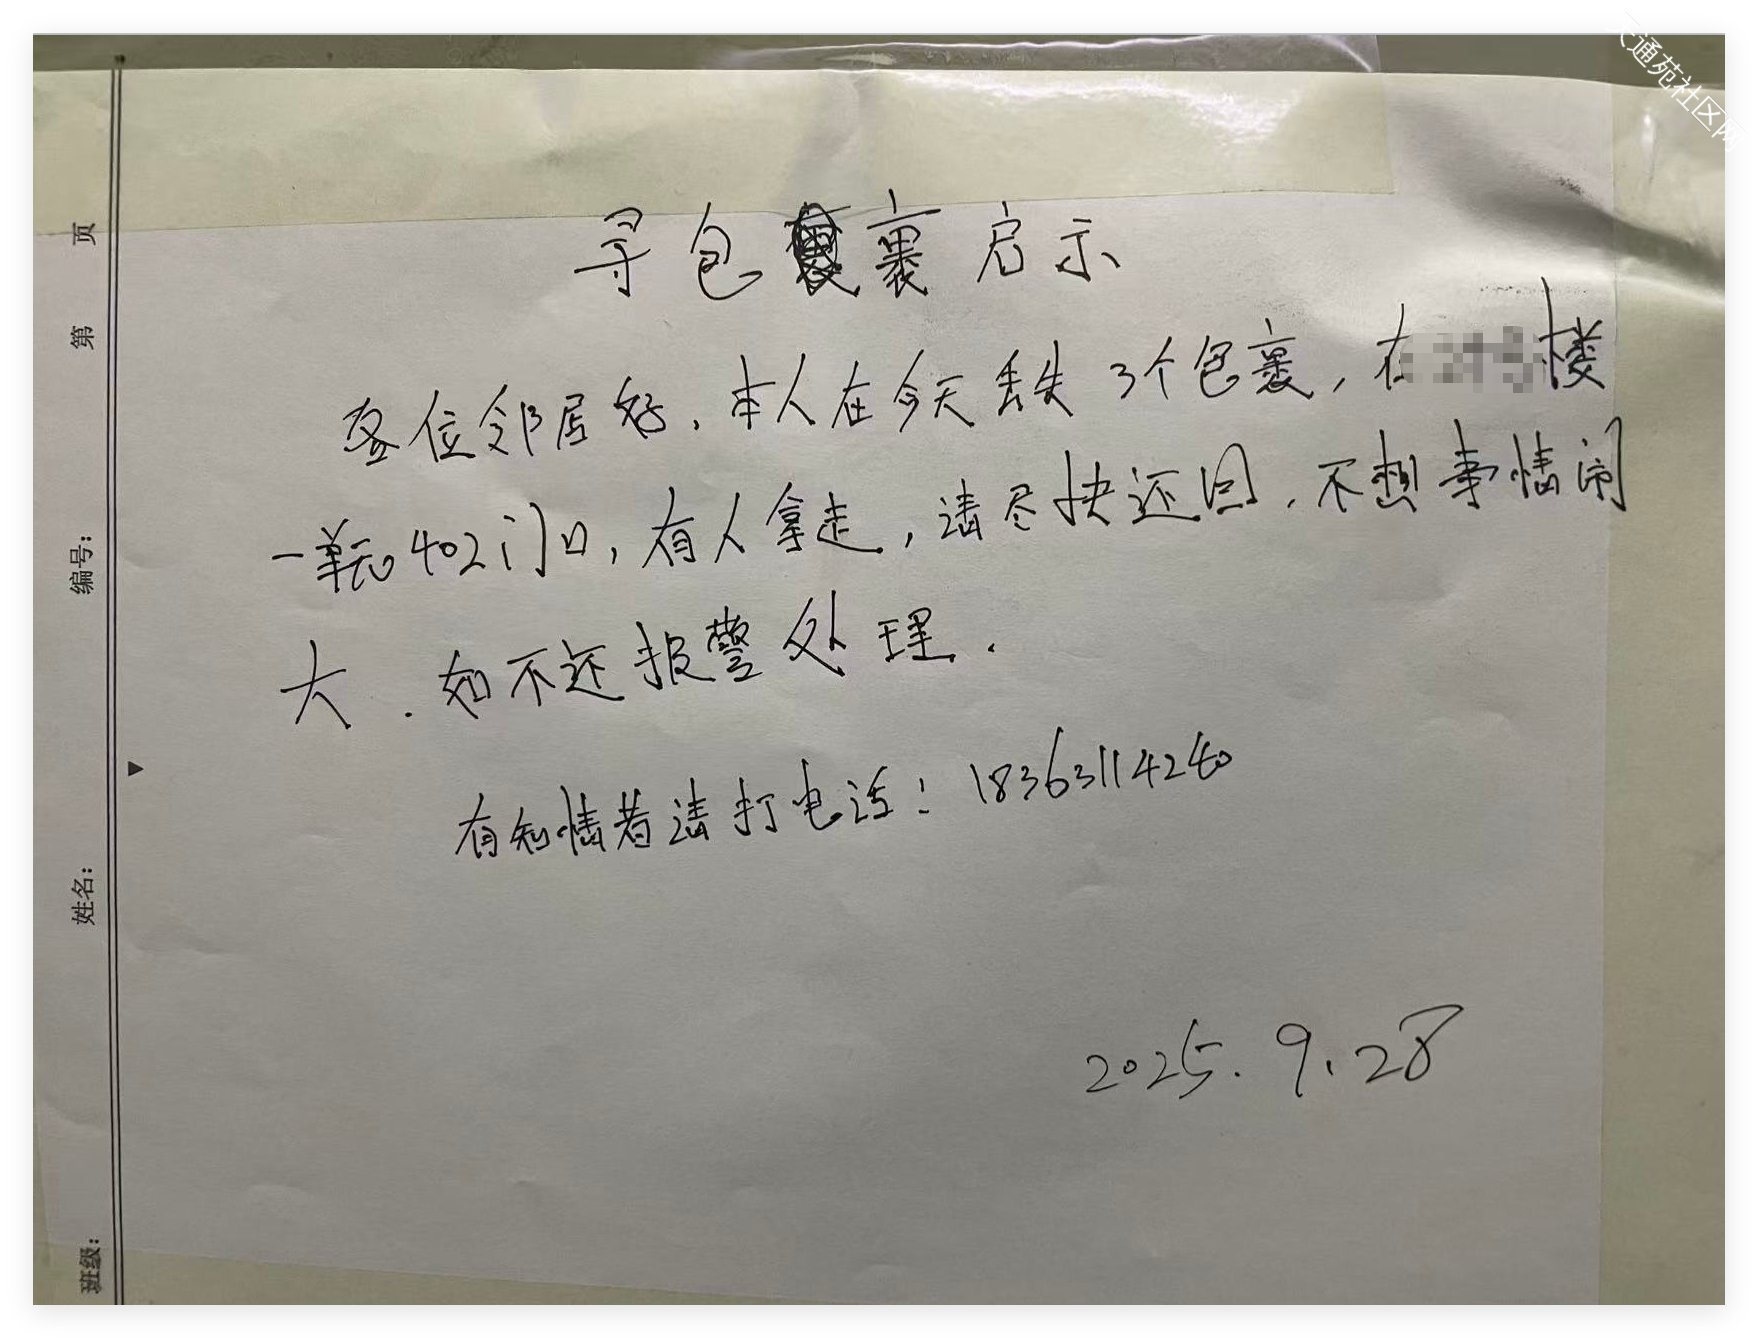 寻包裹启示
各位邻居好，本人在今天丢失3个包裹，在楼
一单元402门口，有人拿走，请尽快还回，不想事情闹
大．如不还报警处理．
有知情者请打电话：18363114240
2025.9.28
第 页
编号：
姓名：
班级：
通苑社区网